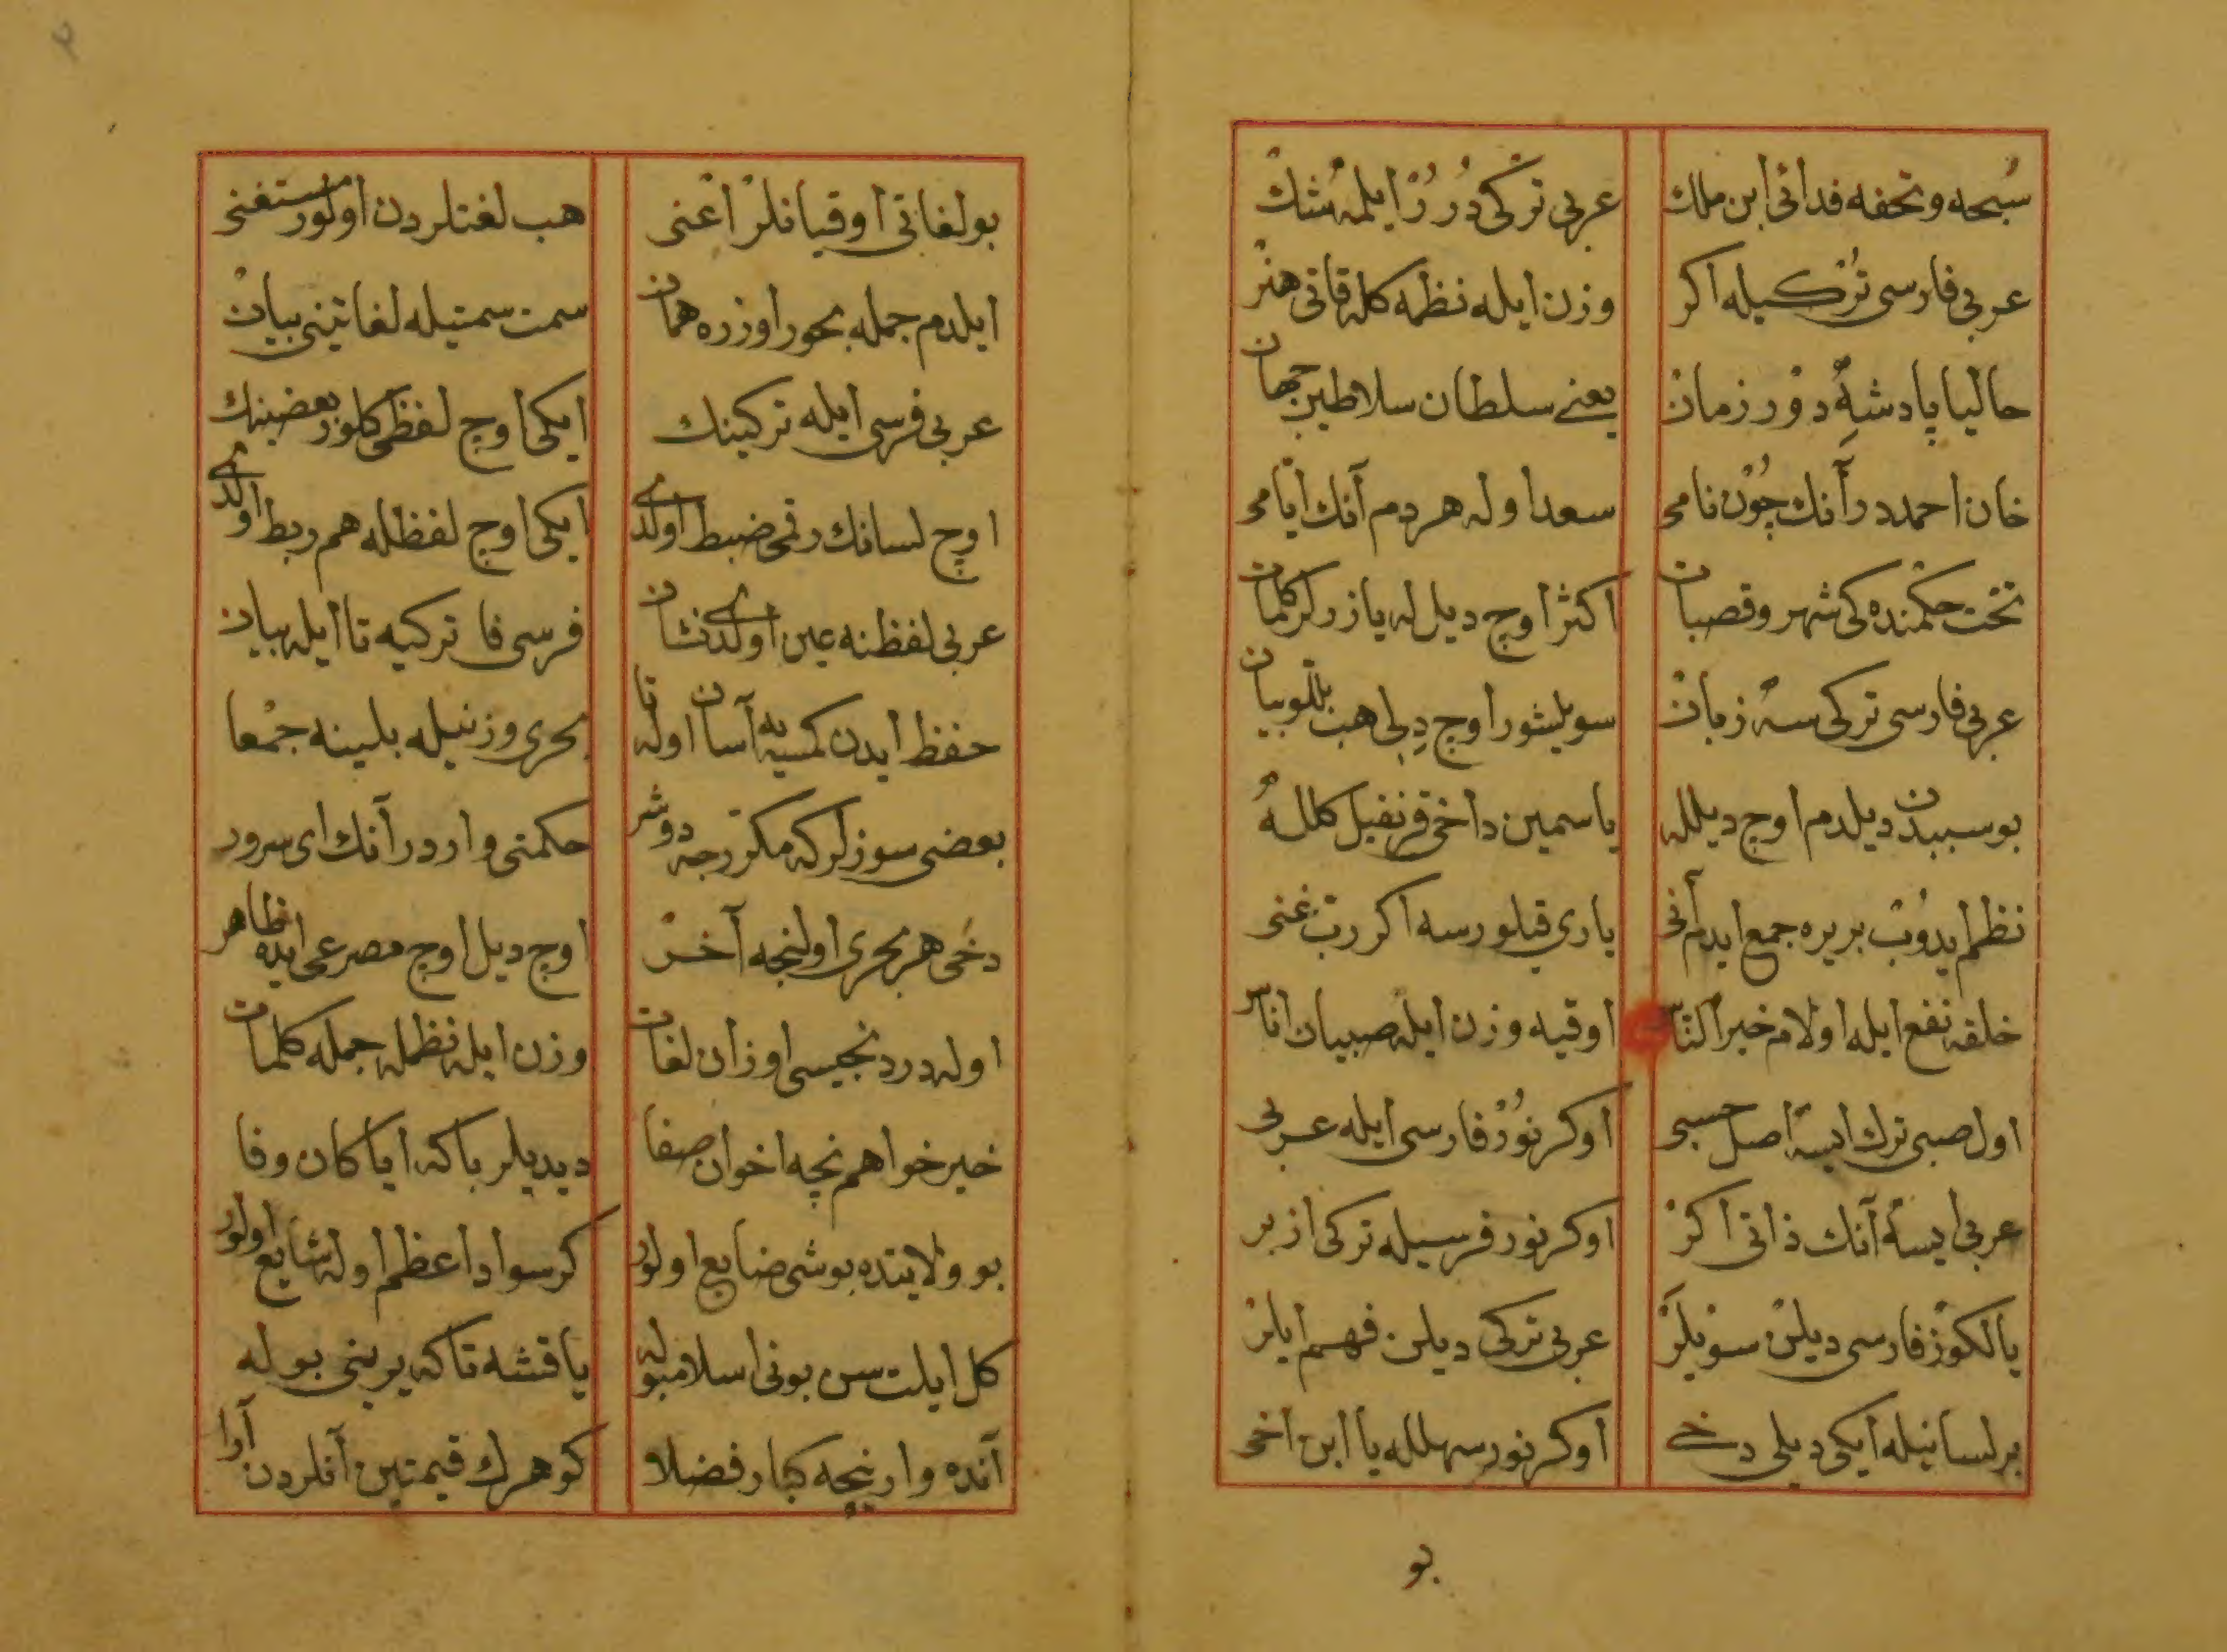 سبحه و تحفه فدائی ابن ملك عربی ترکی درر ایلمه شك
عربی فارسی ترکیله اکر وزن ایله نظمه کله قاتی هنر
حالیا پادشه دور زمان یعنی سلطان سلاطین جهان
خان احمددر آنك چون نامی سعد اوله هر دم آنك ایامی
تخت حکمنده کی شهر و قصبات اکثر اوچ دیل له یازرلر کلمات
عربی فارسی ترکی سه زبان سویلیشور اوچ دیلی هب بللو بیان
بو سببدن دیلدم اوچ دیلله یاسمین داخی قرنفیل کلله
نظم ایدوب بریره جمع ایدم آنی یاری قیلورسه اکر رب غنی
خلقه نفع ایله اولام خیر الناس اوقیه وزن ایله صبیان اناس
اول صبی ترك ایسه اصل حسبی اوکرنور فارسی ایله عربی
عربی ایسه آنك ذاتی اکر اوکرنور فرسیله ترکی ازبر
یالکوز فارسی دیلن سویلر عربی ترکی دیلن فهم ایلر
بر لسانیله ایکی دیلی دخی اوکرنور سهلله یا ابن اخی
بو
بو لغاتی اوقیانلر اعنی هب لغتلردن اولور مستغنی
ایلدم جمله بحور اوزره همان سمت سمتیله لغاتینی بیان
عربی فرسی ایله ترکینك ایکی اوچ لفظی کلور بعضینك
اوچ لسانك رقمی ضبط اولدی ایکی اوچ لفظله هم ربط اولدی
عربی لفظنه عین اولدی نشان فرسی فا ترکیه تا ایله بیان
حفظ ایدن کمسیه آسان اوله تا بحری وزنیله بلینه جمعا
بعضی سوزلر که مکررجه دوشر حکمتی واردر آنك ای سرور
دخی هر بحری اولنجه آخر اوچ دیل اوچ مصرعی ایده ظاهر
اوله دردنجیسی اوزان لغات وزن ایله نظمله جمله کلمات
خیر خواهم نچه اخوان صفا دیدیلر باکه ایا کان وفا
بو ولایتده بو شی ضایع اولور کر سواد اعظم اوله شایع اولور
کل ایلت سن بونی اسلامبوله یاقشه تاکه یرینی بوله
آنده وار نیچه کبار فضلا کوهرك قیمتین آنلردن آرا